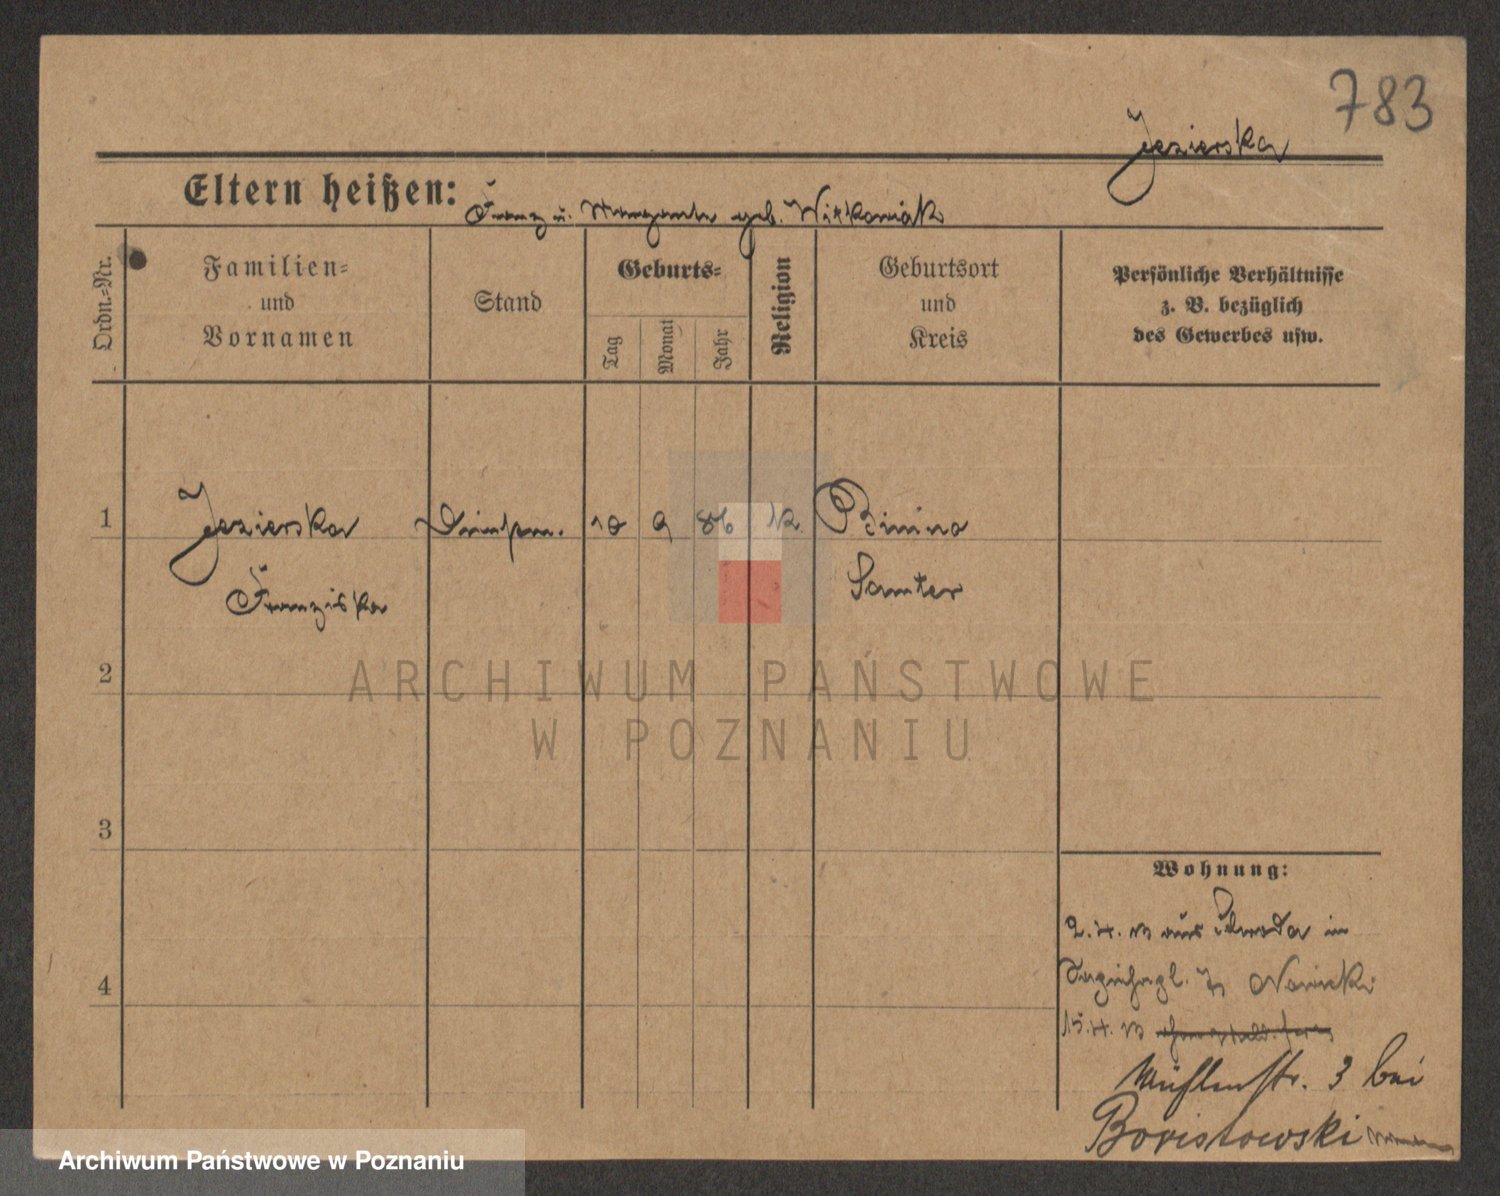 783
Jezierska
Eltern heißen: Franz u. Margareta geb. Witkowiak
Ordn.-Nr.
Familien-
und
Vornamen
Stand
Geburts-
Tag
Monat
Jahr
Religion
Geburtsort
und
Kreis
Persönliche Verhältnisse
z. B. bezüglich
des Gewerbes usw.
1 Jezierska 10 9 86 k. Binino
Franziska Samter
2
3
4
Wohnung:
2.4. aus Schroda in
Nowicki
15.4.
Mühlenstr. 3 bei
Boristowski
ARCHIWUM PAŃSTWOWE
W POZNANIU
Archiwum Państwowe w Poznaniu